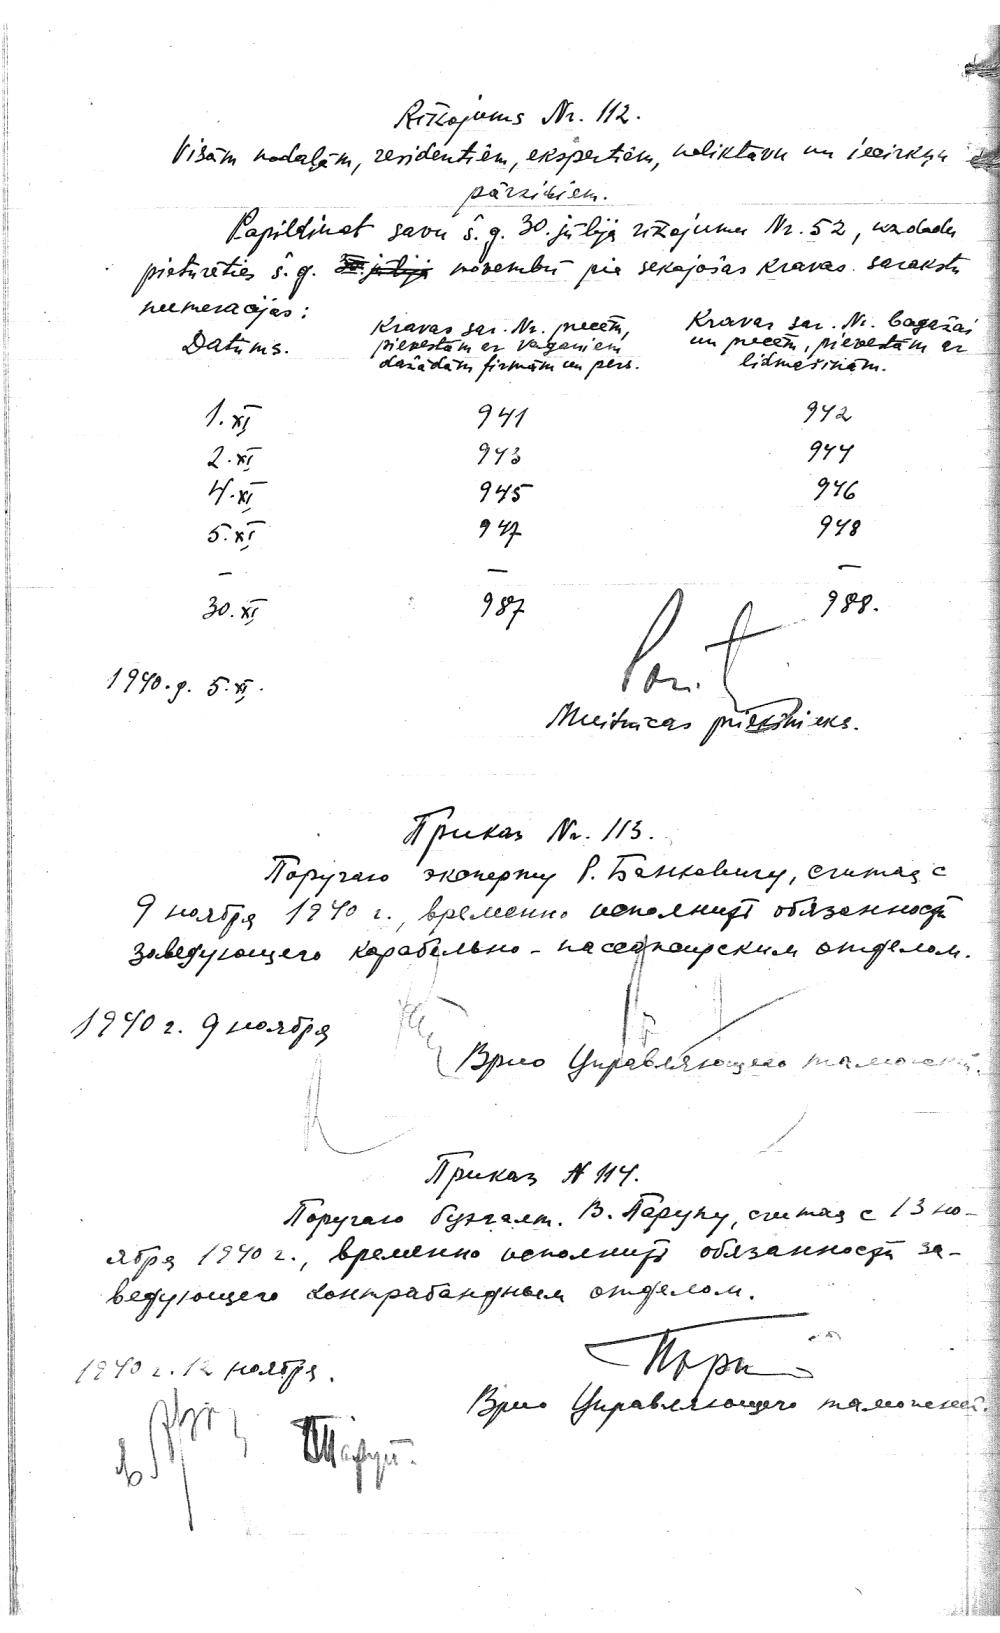 Rīkojums Nr. 112.
Visām nodaļām, rezidentiem, ekspertiem, noliktavu un iecirkņu
pārziņiem.
Papildinot savu š.g. 30. jūlija rīkojumu Nr. 52, uzdodu
pieturēties š.g. novembrī pie sekojošas kravas sarakstu
numerācijas:
Datums.
Kravas sar. Nr. precēm,
pievestām ar vagoniem
dažādām firmām un pers.
Kravas sar. Nr. bagāžai
un precēm, pievestām ar
lidmašīnām.
1. XI 941 942
2. XI 943 944
4. XI 945 946
5. XI 947 948
– – –
30. XI 987 988.
1940. g. 5. XI.
Muitnīcas priekšnieks.
Приказ Nr. 113.
Поручаю эксперту Р. Банковичу, считая с
9 ноября 1940 г., временно исполнить обязанности
заведующего карабельно-пассажирским отделом.
1940 г. 9 ноября
Врио Управляющего таможней.
Приказ N 114.
Поручаю бухгалт. В. Парупу, считая с 13 но-
ября 1940 г., временно исполнить обязанности за-
ведующего контрабандным отделом.
1940 г. 12 ноября.
Врио Управляющего таможней.